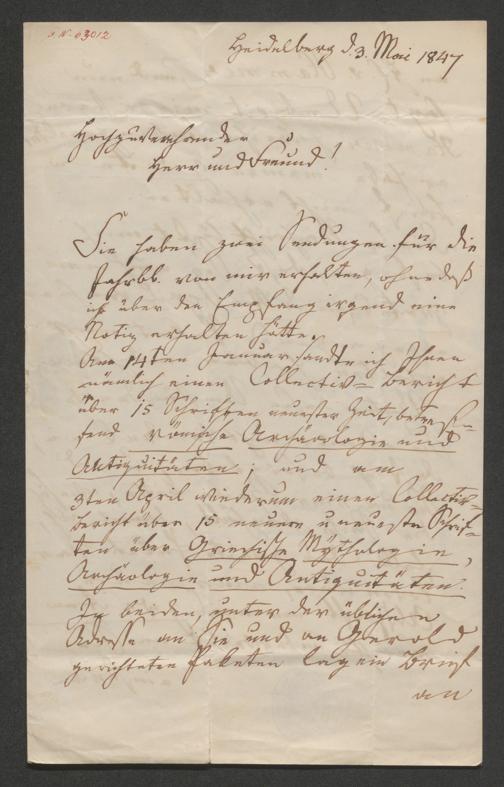 I. N. 63012
Heidelberg d. 3. Mai 1847
Hochzuverehrender
Herr und Freund!
Sie haben zwei Sendungen für die
Jahrbb. von mir erhalten, ohne daß
ich über den Empfang irgend eine
Notiz erhalten hätte.
Am 14ten Januar sandte ich Ihnen
nämlich einen Collectiv-Bericht
über 15 Schriften neuester Zeit, betref-
fend römische Archäologie und
Antiquitäten; und am
3ten April wiederum einen Collectiv-
bericht über 15 neuere u neueste Schrif-
ten über Griechische Mythologie,
Archäologie und Antiquitäten.
In beiden, unter der üblichen
Adresse an Sie und an Gerold
gerichteten Paketen lag ein Brief
an